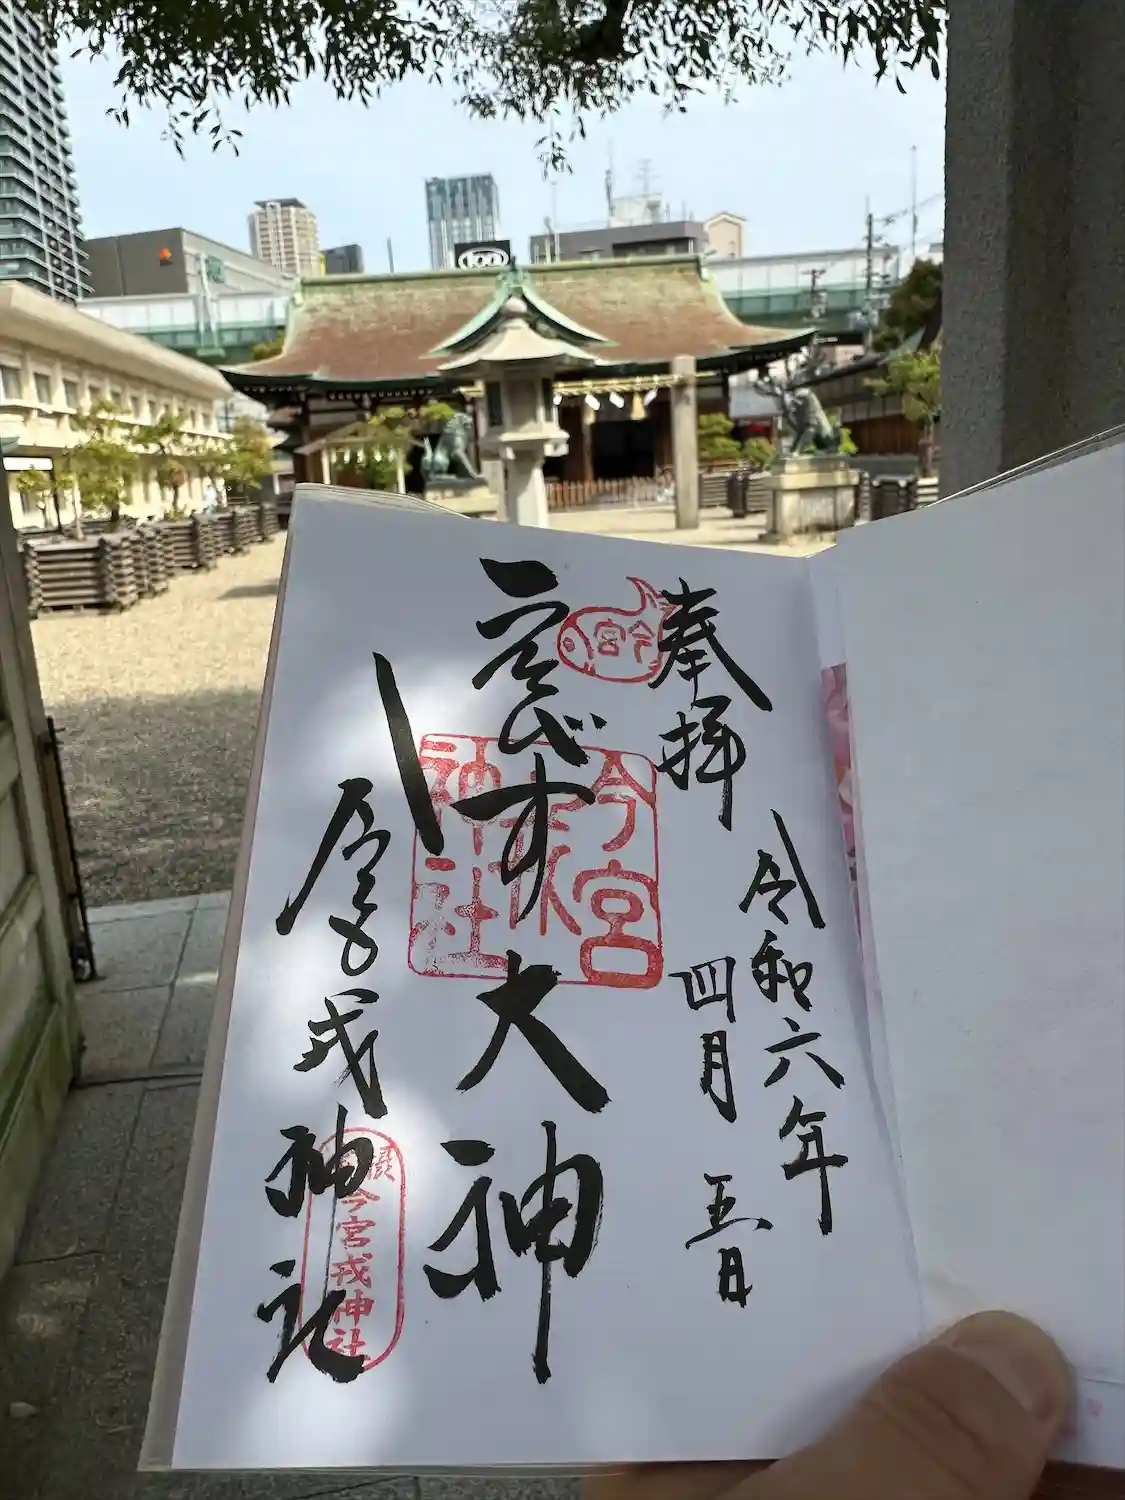 奉拝
令和六年
四月五日
今宮
ゑびす大神
今宮
神社
今宮戎神社
今宮戎神社